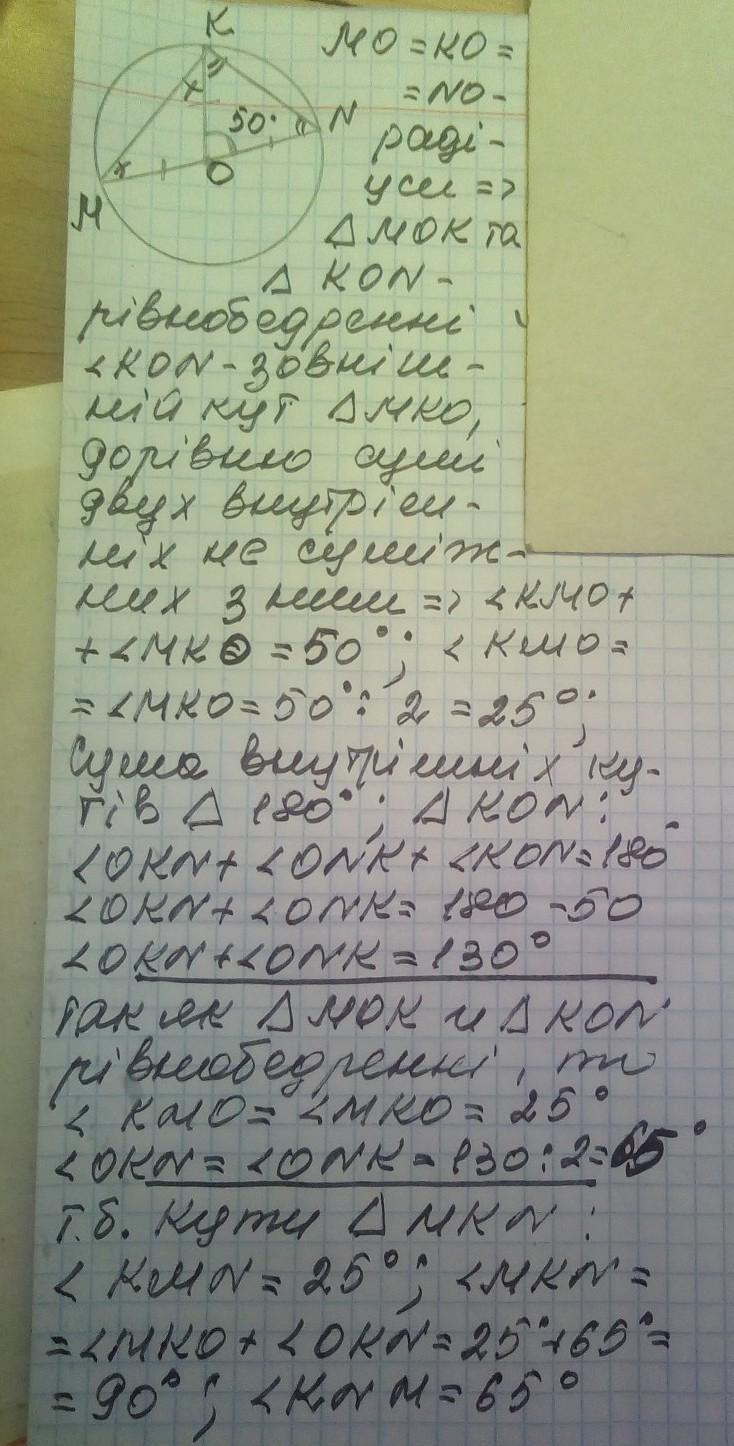 K
MO = KO =
= NO -
50°
N
раді-
O
уси =>
M
△ MOK та
△ KON -
рівнобедренні
∠KON - зовніш-
ній кут △MKO,
дорівню сумі
двух внутріш-
ніх не суміж-
них з ним => ∠KMO +
+ ∠MKO = 50°; ∠KMO =
= ∠MKO = 50° : 2 = 25°;
Сума внутрішніх ку-
тів △ 180°; △ KON:
∠OKN + ∠ONK + ∠KON = 180°
∠OKN + ∠ONK = 180 - 50
∠OKN + ∠ONK = 130°
так як △ MOK и △ KON
рівнобедренні, то
∠ KMO = ∠MKO = 25°
∠OKN = ∠ONK = 130 : 2 = 65°
т.б. Кути △ MKN:
∠ KMN = 25°; ∠MKN =
= ∠MKO + ∠OKN = 25° + 65° =
= 90°; ∠KNM = 65°